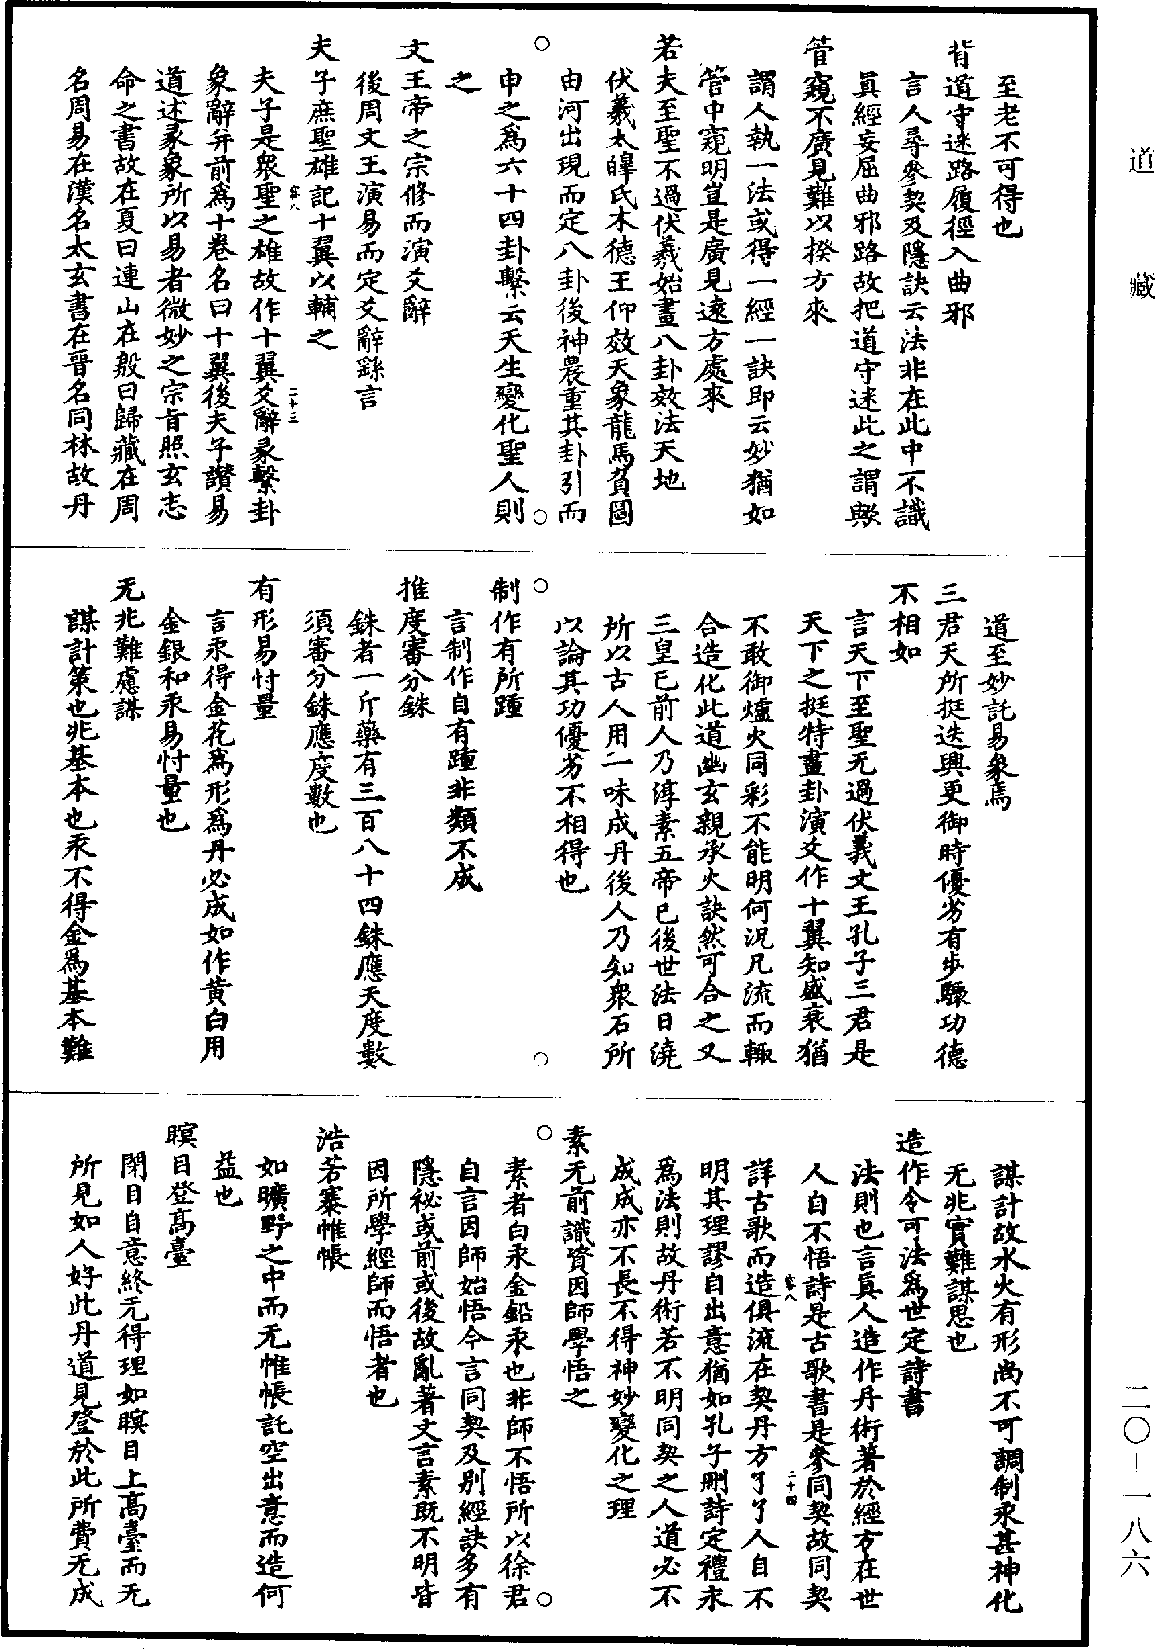 道藏
至老不可得也
背道守迷路履徑入曲邪
言人尋參契及隱訣云法非在此中不識
真經妄屈曲邪路故把道守迷此之謂歟
管窺不廣見難以揆方來
謂人執一法或得一經一訣即云妙猶如
管中窺明豈是廣見遠方處來
若夫至聖不過伏羲始畫八卦效法天地
伏羲太皞氏木德王仰效天象龍馬負圖
由河出現而定八卦後神農重其卦引而
申之為六十四卦繫云天生變化聖人則
之
文王帝之宗修而演爻辭
後周文王演易而定爻辭繇言
夫子庶聖雄記十翼以輔之
夫子是衆聖之雄故作十翼爻辭彖繫卦
容八
二十三
象辭并前為十卷名曰十翼後夫子讚易
道述彖象所以易者微妙之宗旨照玄志
命之書故在夏曰連山在殷曰歸藏在周
名周易在漢名太玄書在晉名同林故丹
道至妙託易象焉
三君天所挺迭興更御時優劣有步驟功德
不相如
言天下至聖无過伏羲文王孔子三君是
天下之挺特畫卦演爻作十翼知盛衰猶
不敢御爐火同彩不能明何況凡流而輒
合造化此道幽玄親承火訣然可合之又
三皇已前人乃淳素五帝已後世法日澆
所以古人用一味成丹後人乃知衆石所
以論其功優劣不相得也
制作有所踵
言制作自有踵非類不成
推度審分銖
銖者一斤藥有三百八十四銖應天度數
須審分銖應度數也
有形易忖量
言汞得金花為形為丹必成如作黃白用
金銀和汞易忖量也
无兆難慮謀
謀計策也兆基本也汞不得金為基本難
謀計故水火有形尚不可調制汞甚神化
无兆實難謀思也
造作令可法為世定詩書
法則也言真人造作丹術著於經方在世
人自不悟詩是古歌書是參同契故同契
容八
二十四
詳古歌而造俱流在契丹方了了人自不
明其理謬自出意猶如孔子刪詩定禮永
為法則故丹術若不明同契之人道必不
成成亦不長不得神妙變化之理
素无前識資因師學悟之
素者白汞金鉛汞也非師不悟所以徐君
自言因師始悟今言同契及別經訣多有
隱祕或前或後故亂著文言素既不明皆
因所學經師而悟者也
浩若褰帷帳
如曠野之中而无帷帳託空出意而造何
益也
瞑目登高臺
閉目自意終无得理如瞑目上高臺而无
所見如人好此丹道見登於此所費无成
二〇—一八六